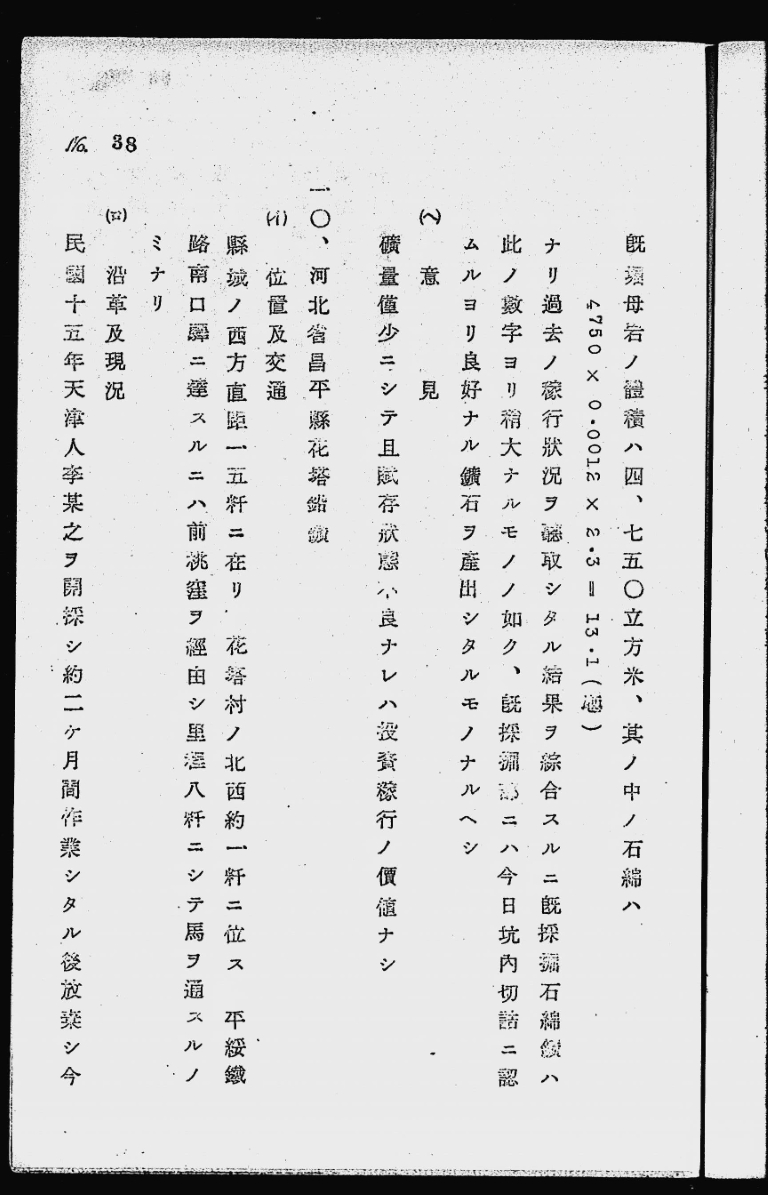 No. 38
既掘母岩ノ體積ハ四、七五〇立方米、其ノ中ノ石綿ハ
4750 × 0.0012 × 2.3 = 13.1 (瓲)
ナリ過去ノ稼行狀況ヲ聽取シタル結果ヲ綜合スルニ既採掘石綿鑛ハ
此ノ數字ヨリ稍大ナルモノノ如ク、既採掘部ニハ今日坑內切詰ニ認
ムルヨリ良好ナル鑛石ヲ產出シタルモノナルヘシ
(ヘ) 意見
礦量僅少ニシテ且賦存狀態不良ナレハ投資稼行ノ價値ナシ
一〇、河北省昌平縣花塔鉛鑛
(イ) 位置及交通
縣城ノ西方直距一五粁ニ在リ 花塔村ノ北西約一粁ニ位ス 平綏鐵
路南口驛ニ達スルニハ前桃窪ヲ經由シ里程八粁ニシテ馬ヲ通スルノ
ミナリ
(ロ) 沿革及現況
民國十五年天津人李某之ヲ開採シ約二ケ月間作業シタル後放棄シ今